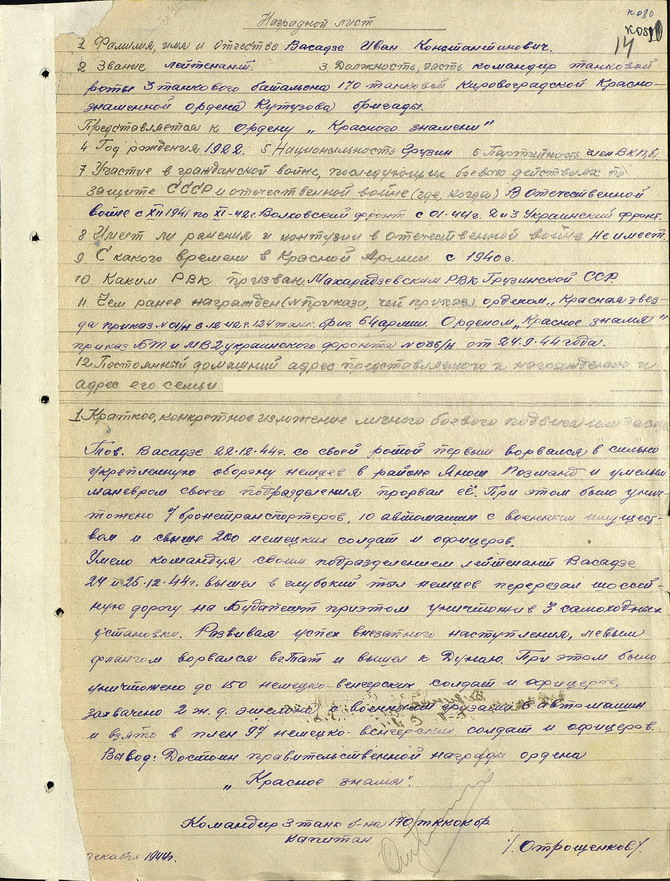 Наградной лист
14
1 Фамилия, имя и отчество Васадзе Иван Константинович.
2 Звание лейтенант 3 Должность, часть командир танковой
роты 3 танкового батальона 170 танковой Кировоградской Красно-
знаменной ордена Кутузова бригады.
Представляется к ордену „Красного знамени"
4 Год рождения 1922. 5 Национальность грузин 6 Партийность член ВКП(б)
7 Участие в гражданской войне, последующих боевых действиях по
защите СССР и отечественной войне (где, когда) В Отечественной
войне с XII 1941 по XI-42г. Волховский фронт с 01.44г. 2 и 3 Украинский фронт.
8 Имеет ли ранения и контузии в отечественной войне Не имеет
9 С какого времени в Красной Армии с 1940г.
10 Каким РВК призван Махарадзевским РВК Грузинской ССР.
11 Чем ранее награжден (№ приказа, чей приказ) орденом „Красная звез-
да приказ 12.42г. 124 танк. бриг. 54 армии. Орденом „Красное знамя"
приказ БТ и МВ 2 украинского фронта от 24.9.44 года.
12 Постоянный домашний адрес представляемого к награждению и
адрес его семьи
1 Краткое, конкретное изложение личного боевого подвига или
Тов. Васадзе 22.12.44г. со своей ротой первым ворвался в сильно
укрепленную оборону немцев в районе и умелым
маневром своего подразделения прорвал её. При этом было унич-
тожено 7 бронетранспортеров, 10 автомашин с военным имущест-
вом и свыше 200 немецких солдат и офицеров.
Умело командуя своим подразделением лейтенант Васадзе
24 и 25.12.44г. вышел в глубокий тыл немцев перерезал шоссей-
ную дорогу на Будапешт при этом уничтожив 3 самоходных
установки. Развивая успех внезапного наступления, левым
флангом ворвался в Тат и вышел к Дунаю. При этом было
уничтожено до 150 немецко-венгерских солдат и офицеров,
захвачено 2 ж.д. эшелона с военными грузами 6 автомашин
и взято в плен 97 немецко-венгерских солдат и офицеров.
Вывод: Достоин правительственной награды ордена
„Красное знамя".
Командир 3 танк. б-на 170
капитан /Отрощенков/.
декабря 1944г.